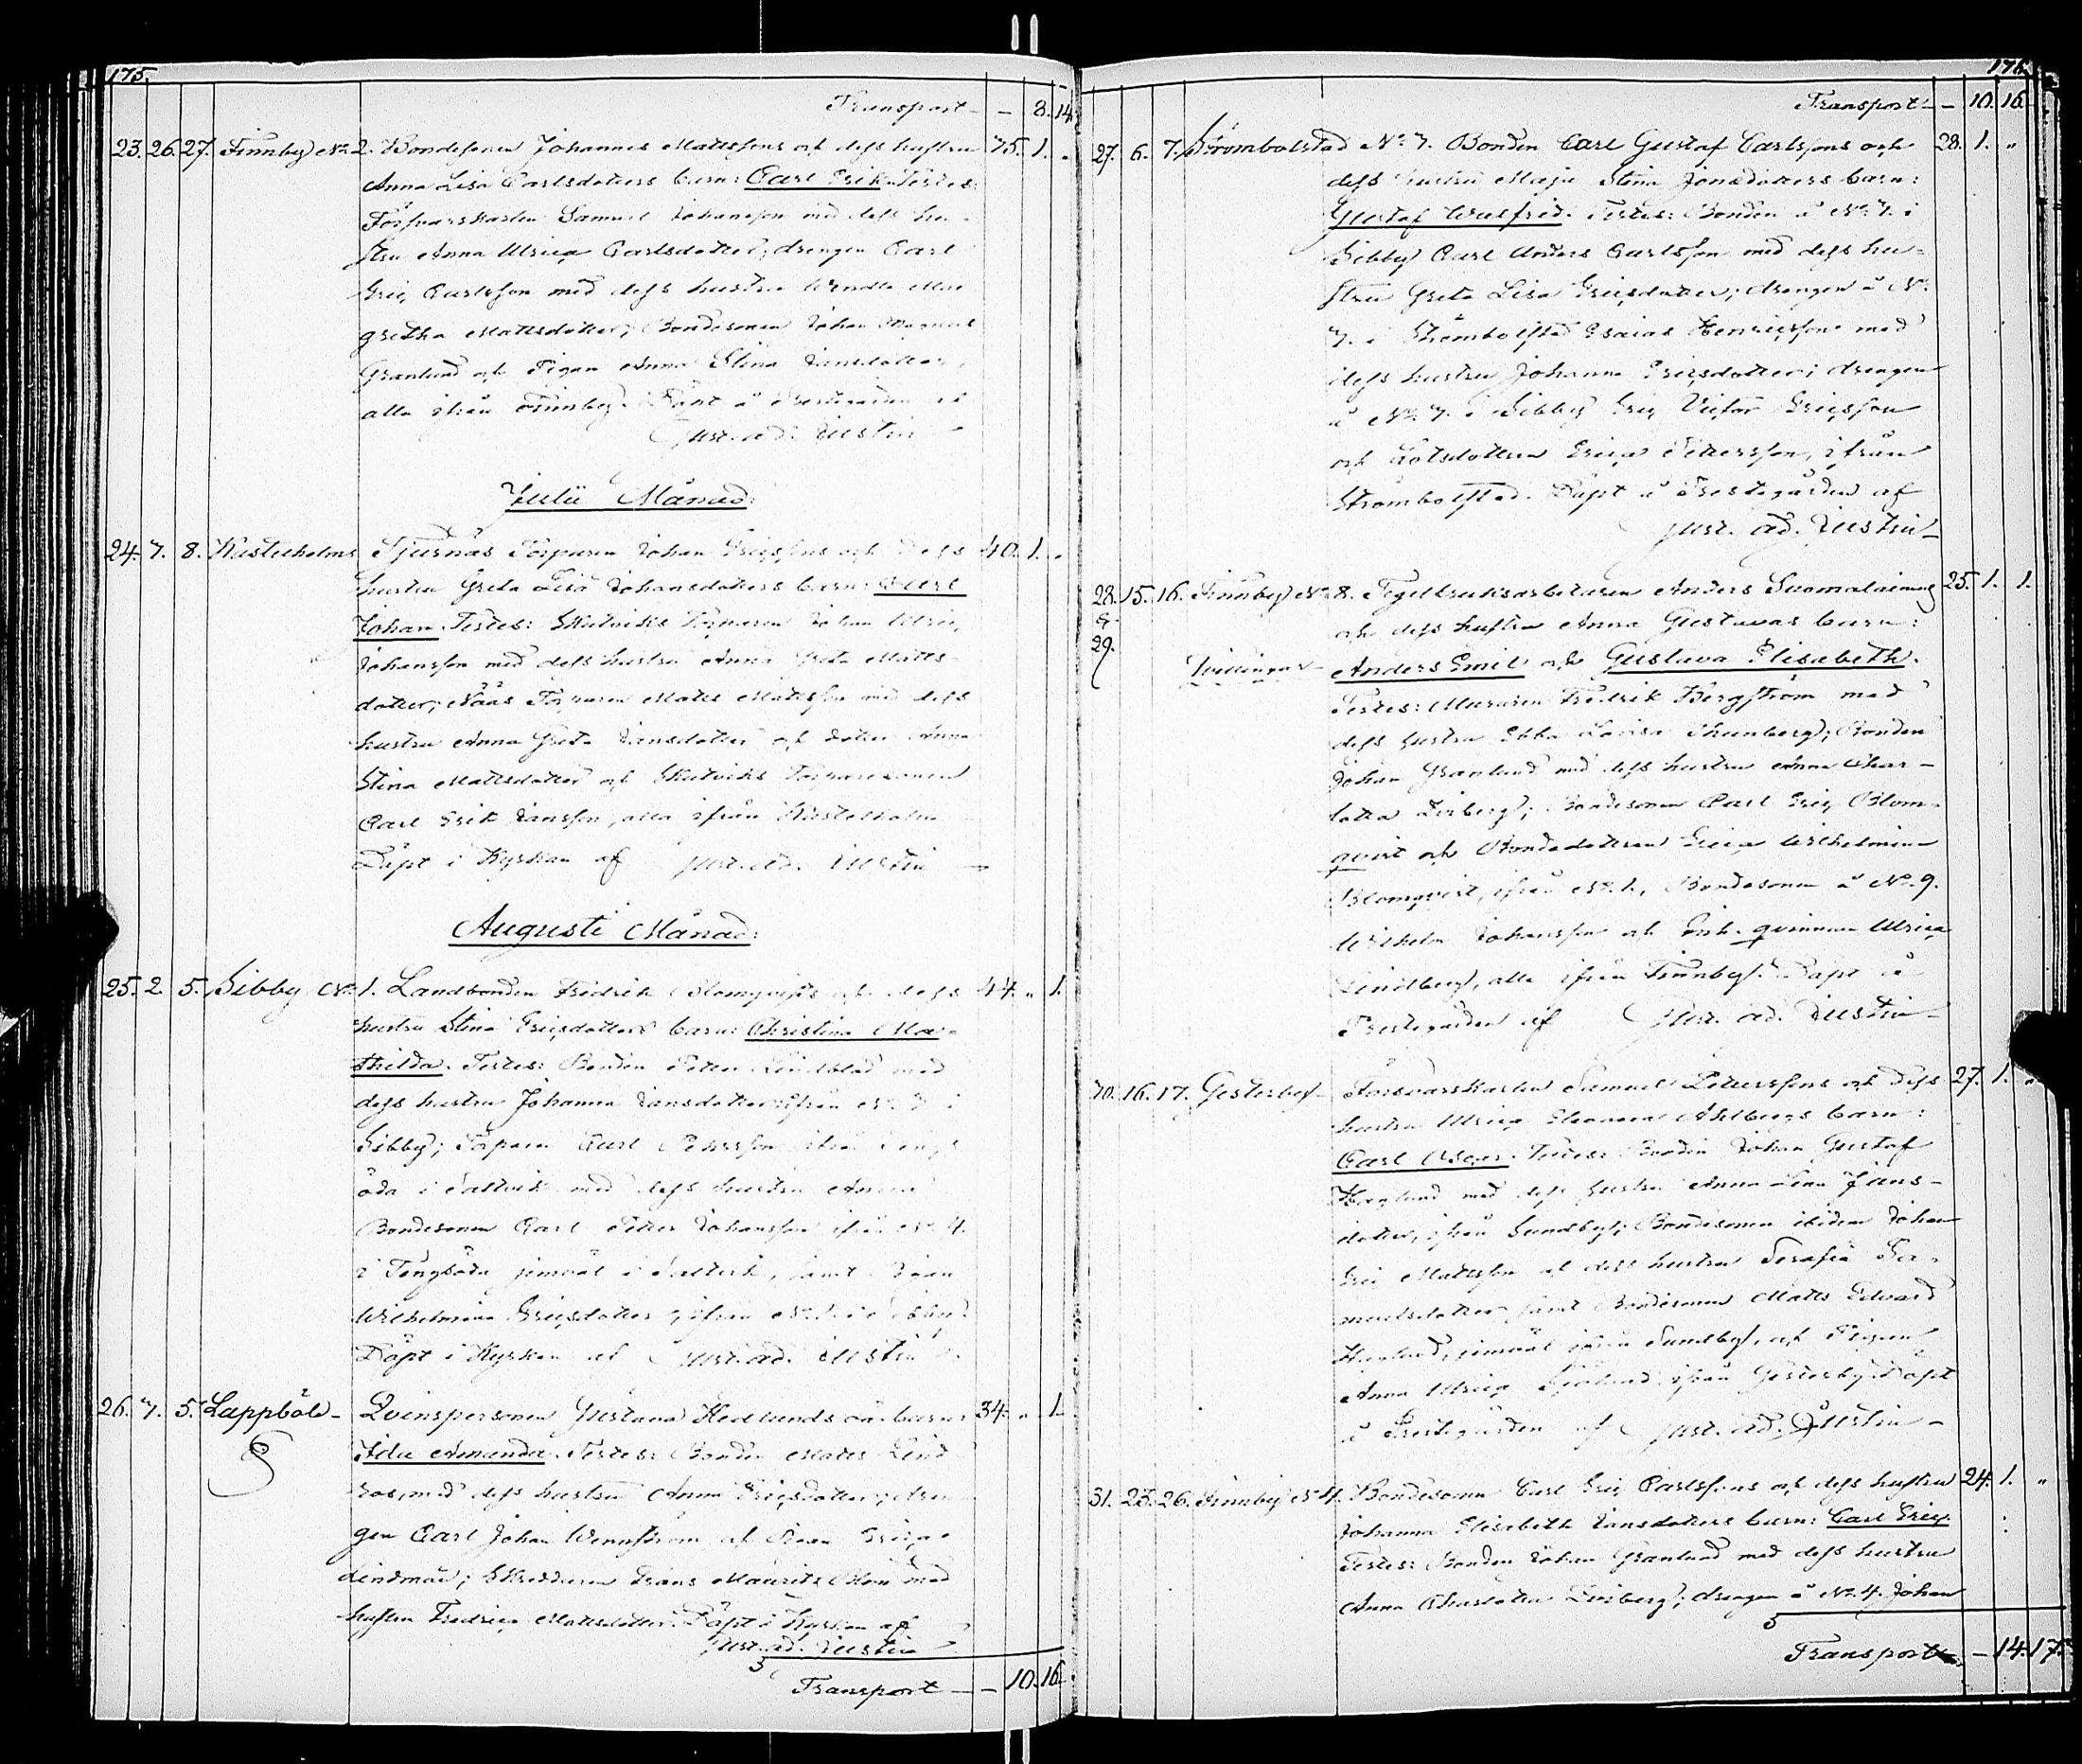 175.
Transport — — 8. 14.
23. 26. 27. Finnby No 2. Bondesonen Johannes Mattssons och dess hustru 75. 1. "
Anna Lisa Carlsdotters barn: Carl Erik. Testes:
Försvarskarlen Samuel Johansson med dess hu-
stru Anna Ulrica Carlsdotter; drengen Carl
Eric Carlsson med dess hustru Wendla Mar
gretha Mattsdotter; Bondesonen Johan Magnus
Granlund och Pigan Anna Stina Jansdotter,
alla ifrån Finnby. Döpt å Prestgården af
Gust. Ad. Zustin
Julii Månad:
24. 7. 8. Kastelholms Tjurnäs Torparen Johan Ericssons och dess 40. 1. "
hustru Greta Lisa Johansdotters barn: Carl
Johan. Testes: Skutviks Torparen Johan Ulric
Johansson med dess hustru Anna Greta Matts-
dotter; Nääs Torparen Matts Mattsson med dess
hustru Anna Greta Jansdotter och dotter Anna
Stina Mattsdotter och Skutviks Torparesonen
Carl Erik Jansson, alla ifrån Kastelholm
Döpt i Kyrkan af Gust. Ad. Zustin —
Augusti Månad:
25. 2. 5. Sibby No 1. Landbonden Fredrik Blomqvists och dess 44. " 1.
hustru Stina Ericsdotters barn: Christina Ma-
thilda. Testes: Bonden Petter Lindblad med
dess hustru Johanna Jansdotter ifrån No 7 i
Sibby; Torparen Carl Petersson ifrån
öda i Saltvik med dess hustru Anna
Bondesonen Carl Petter Johansson ifrån No 4.
i Tengsöda jemväl i Saltvik, samt Pigan
Wilhelmina Ericsdotter, ifrån No 1. i Sibby.
Döpt i Kyrkan af Gust. Ad. Zustin.
26. 7. 5. Lappböle — Qvinspersonen Gustava Hedlunds oä. barn: 34. " 1.
Ida Amanda. Testes: Bonden Matts Lind
roos, med dess hustru Anna Ericsdotter; dren
gen Carl Johan Wennström och Pigan Erica
Lindman; Skreddaren Frans Mauritz Blom med
hustru Fredrica Mattsdotter. Döpt i Kyrkan af
Gust. Ad. Zustin
3
Transport — — 10. 16.
176.
Transport — — 10. 16.
27. 6. 7. Strömbolstad No 7. Bonden Carl Gustaf Carlssons och 28. 1. "
dess hustru Maja Stina Jonsdotters barn:
Gustaf Wilfrid. Testes: Bonden å No 7. i
Sibby Carl Anders Carlsson med dess hu-
stru Greta Lisa Ericsdotter; drengen å No
7. i Strömbolstad Esaias Henricsson med
dess hustru Johanna Ericsdotter; drengen
å No 7. i Sibby Eric Victor Ericsson
och Lotsdottren Erica Pettersson, ifrån
Strömbolstad. Döpt å Prestegården af
Gust. Ad. Zustin —
28. 15. 16. Finnby No 8. Tegelbruksarbetaren Anders Suomalainens 25. 1. 1.
&
29.
och dess hustru Anna Gustavas barn:
Tvillingar — Anders Emil och Gustava Elisabeth.
Testes: Muraren Fredrik Bergström med
dess hustru Ebba Lovisa Thunberg; Bonden
Johan Granlund med dess hustru Anna Char-
lotta Linberg; Bondesonen Carl Eric Blom-
qvist och Bondedottren Erica Wilhelmina
Blomqvist, ifrån No 1., Bondesonen å No. 9.
Wilhelm Johansson och Enk. qvinnan Ulrica
Lindberg, alla ifrån Finnby. Döpt å
Prestegården af Gust. Ad. Zustin —
30. 16. 17. Gesterby — Försvarskarlen Samuel Peterssons och dess 27. 1. "
hustru Ulrica Eleonora Ahlbergs barn:
Carl Oscar. Testes: Bonden Johan Gustaf
Haglund med dess hustru Anna Lena Jans-
dotter, ifrån Sundby; Bondesonen ibidem Johan
Eric Mattsson och dess hustru Serafia Sa-
muelsdotter samt Bondesonen Matts Edvard
Haglund, jemväl ifrån Sundby, och Pigan
Anna Ulrica Sjölund ifrån Gesterby. Döpt
å Prestegården af Gust. Ad. Zustin —
31. 23. 26. Finnby No 4. Bondesonen Carl Eric Carlssons och dess hustru 24. 1. "
Johanna Elisabeth Jansdotters barn: Carl Eric.
Testes: Bonden Johan Granlund med dess hustru
Anna Charlotta Linberg; drengen å No. 4. Johan
5
Transport — 14. 17.